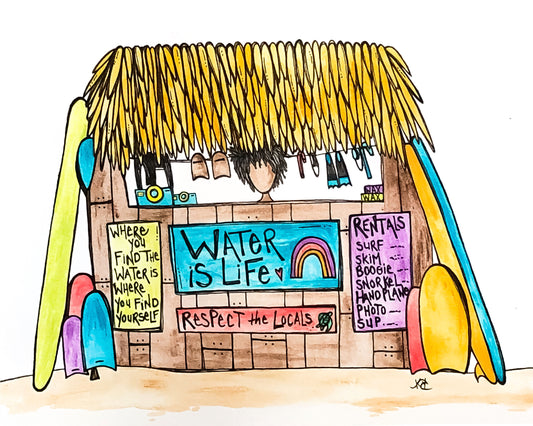 WAX
WAX
WHERE
YOU
FIND THE
WATER IS
WHERE
YOU FIND
YOURSELF
WATER
IS LIFE
RESPECT the LOCALS
RENTALS
SURF
SKIM
BOOGIE
SNORKEL
HANDPLANE
PHOTO
SUP